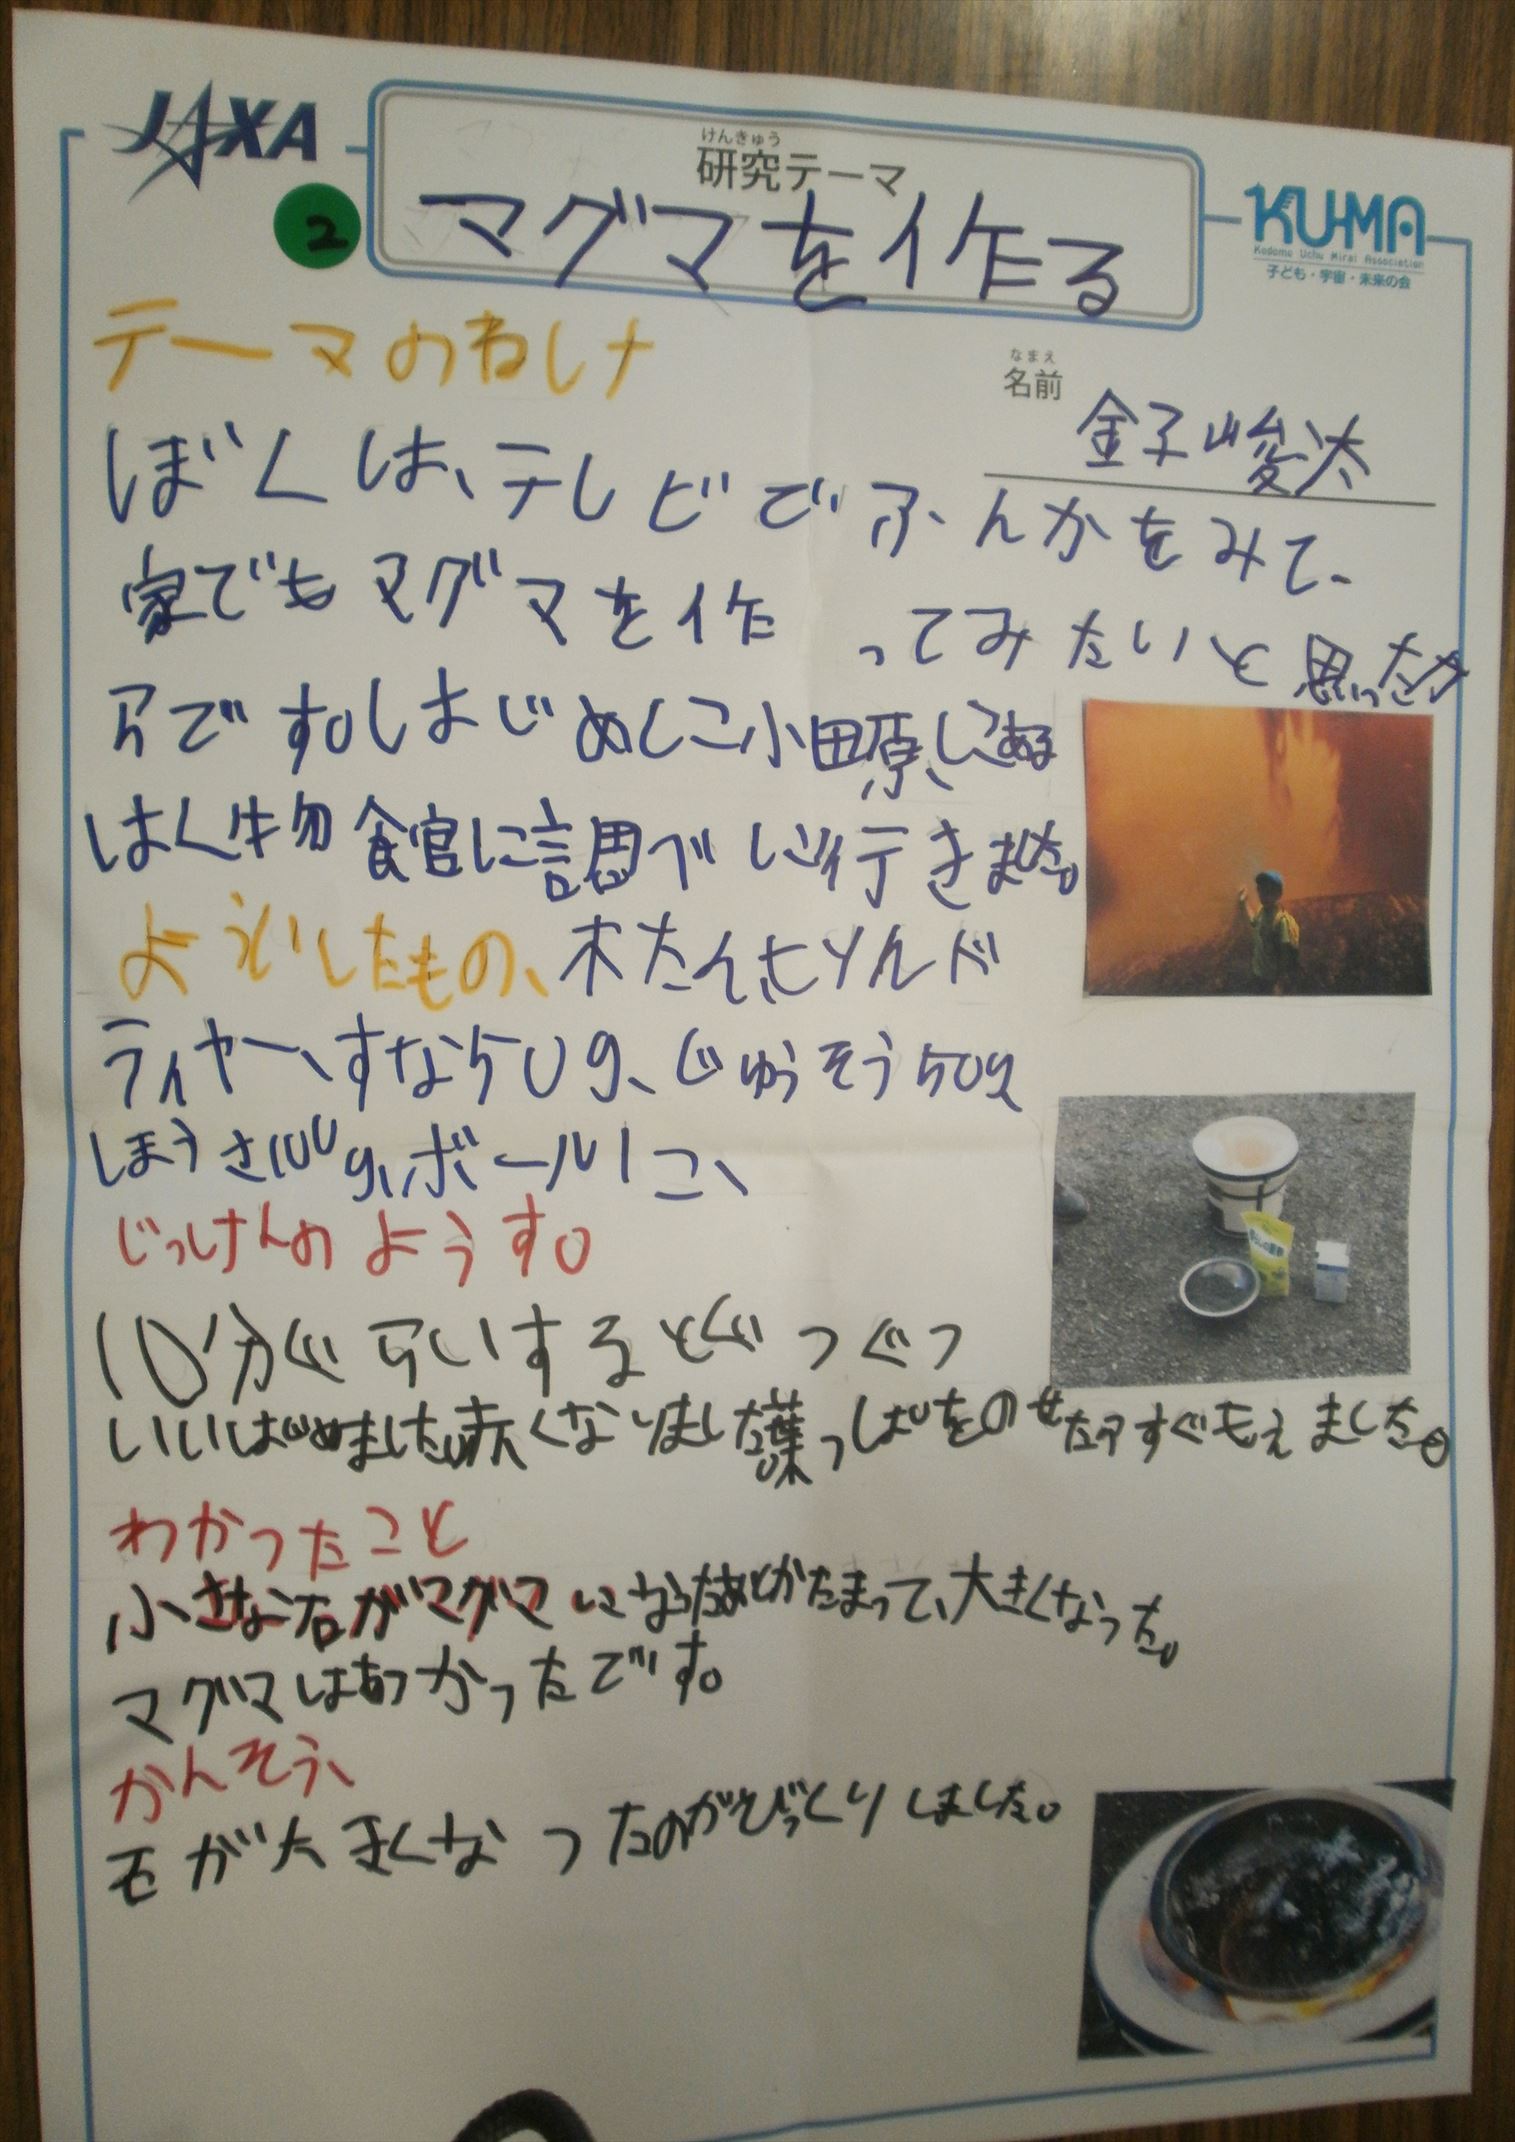 JAXA
けんきゅう
研究テーマ
2
マグマを作る
KU-MA
Kodomo Uchu Mirai Association
子ども・宇宙・未来の会
テーマのわけ
なまえ
名前
金子峻汰
ぼくは、テレビでふんかをみて、
家でもマグマを作ってみたいと思ったか
らです。はじめに小田原にある
はく物館に調べに行きました。
よういしたもの、木たん、ヒンド
ライヤー、すな50g、じゅうそう50g
ほうさ100g、ボールに、
じっけんのようす。
10分ぐらいするとぐつぐつ
いいはじめました。赤くなりました葉っぱをのせたらすぐもえました。
わかったこと
小さな石がマグマになったあとかたまって、大きくなった。
マグマはあつかったです。
かんそう、
石が大きくなったのがびっくりしました。